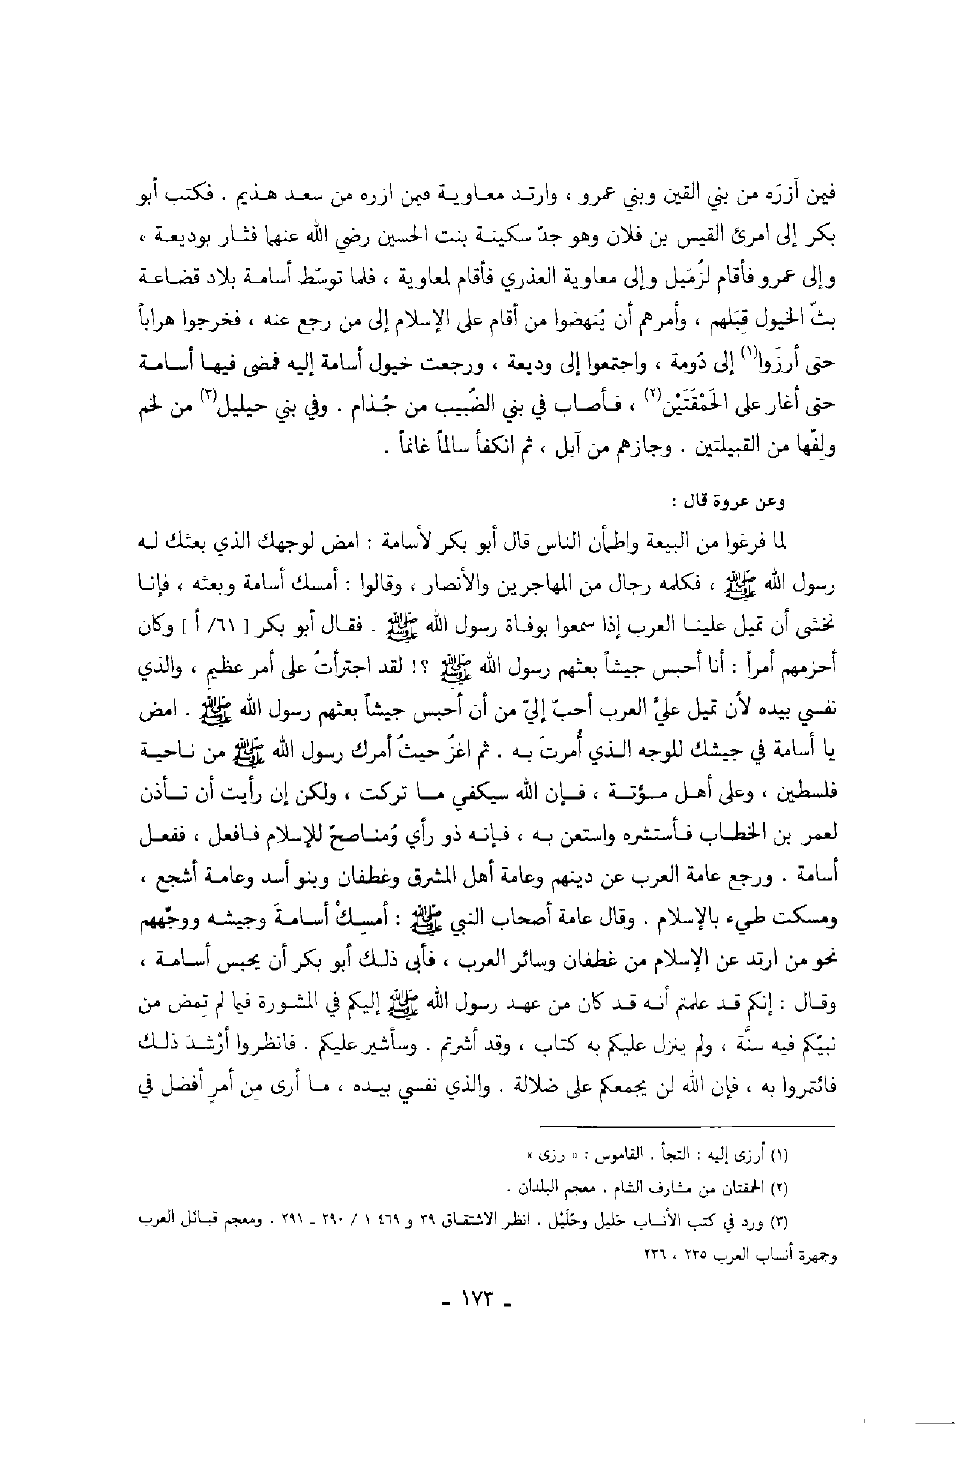 فيمن آزرَه من بني القين وبني عمرو ، وارتد معاوية فيمن ازره من سعد هذيم . فكتب أبو
بكر إلى امرئ القيس بن فلان وهو جدّ سكينة بنت الحسين رضي الله عنها فثار بوديعة ،
وإلى عمرو فأقام لزُمَيل وإلى معاوية العذري فأقام لمعاوية ، فلما توسّط أسامة بلاد قضاعة
بثّ الخيول قِبَلهم ، وأمرهم أن يُنهضوا من أقام على الإسلام إلى من رجع عنه ، فخرجوا هراباً
حتى أرزَوا(١) إلى دُومة ، واجتمعوا إلى وديعة ، ورجعت خيول أسامة إليه فمضى فيها أسامة
حتى أغار على الحَمْقَتَيْن(٢) ، فأصاب في بني الضُبيب من جُذام . وفي بني حيليل(٣) من لخم
ولِفّها من القبيلتين . وجازهم من آبل ، ثم انكفأ سالماً غانماً .
وعن عروة قال :
لما فرغوا من البيعة واطمأن الناس قال أبو بكر لأسامة : امض لوجهك الذي بعثك له
رسول الله ﷺ ، فكلمه رجال من المهاجرين والأنصار ، وقالوا : أمسك أسامة وبعثه ، فإنا
نخشى أن تميل علينا العرب إذا سمعوا بوفاة رسول الله ﷺ . فقال أبو بكر [ ٦١/ أ ] وكان
أحزمهم أمراً : أنا أحبس جيشاً بعثهم رسول الله ﷺ ؟! لقد اجترأتُ على أمر عظيم ، والذي
نفسي بيده لأن تميل عليّ العرب أحبّ إليّ من أن أحبس جيشاً بعثهم رسول الله ﷺ . امض
يا أسامة في جيشك للوجه الذي أُمرتَ به . ثم اغزُ حيثُ أمرك رسول الله ﷺ من ناحية
فلسطين ، وعلى أهل مؤتة ، فإن الله سيكفي ما تركت ، ولكن إن رأيت أن تأذن
لعمر بن الخطاب فأستشره واستعن به ، فإنه ذو رأي وُمناصحٌ للإسلام فافعل ، ففعل
أسامة . ورجع عامة العرب عن دينهم وعامة أهل المشرق وغطفان وبنو أسد وعامة أشجع ،
ومسكت طيء بالإسلام . وقال عامة أصحاب النبي ﷺ : أمسِكْ أسامةَ وجيشه ووجّههم
نحو من ارتد عن الإسلام من غطفان وسائر العرب ، فأبى ذلك أبو بكر أن يحبس أسامة ،
وقال : إنكم قد علمتم أنه قد كان من عهد رسول الله ﷺ إليكم في المشورة فيما لم يمض من
نبيّكم فيه سنَّة ، ولم ينزل عليكم به كتاب ، وقد أشرتم . وسأشير عليكم . فانظروا أرْشدَ ذلك
فائتمروا به ، فإن الله لن يجمعكم على ضلالة . والذي نفسي بيده ، ما أرى مِن أمرٍ أفضل في
(١) أرزى إليه : التجأ . القاموس : « رزى »
(٢) الحمقتان من مشارف الشام . معجم البلدان .
(٣) ورد في كتب الأنساب خليل وحُلَيْل . انظر الاشتقاق ٣٩ و ٤٦٩ ١ / ٢٩٠ ـ ٢٩١ . ومعجم قبائل العرب
وجمهرة أنساب العرب ٢٣٥ ، ٢٣٦
ـ ١٧٣ ـ